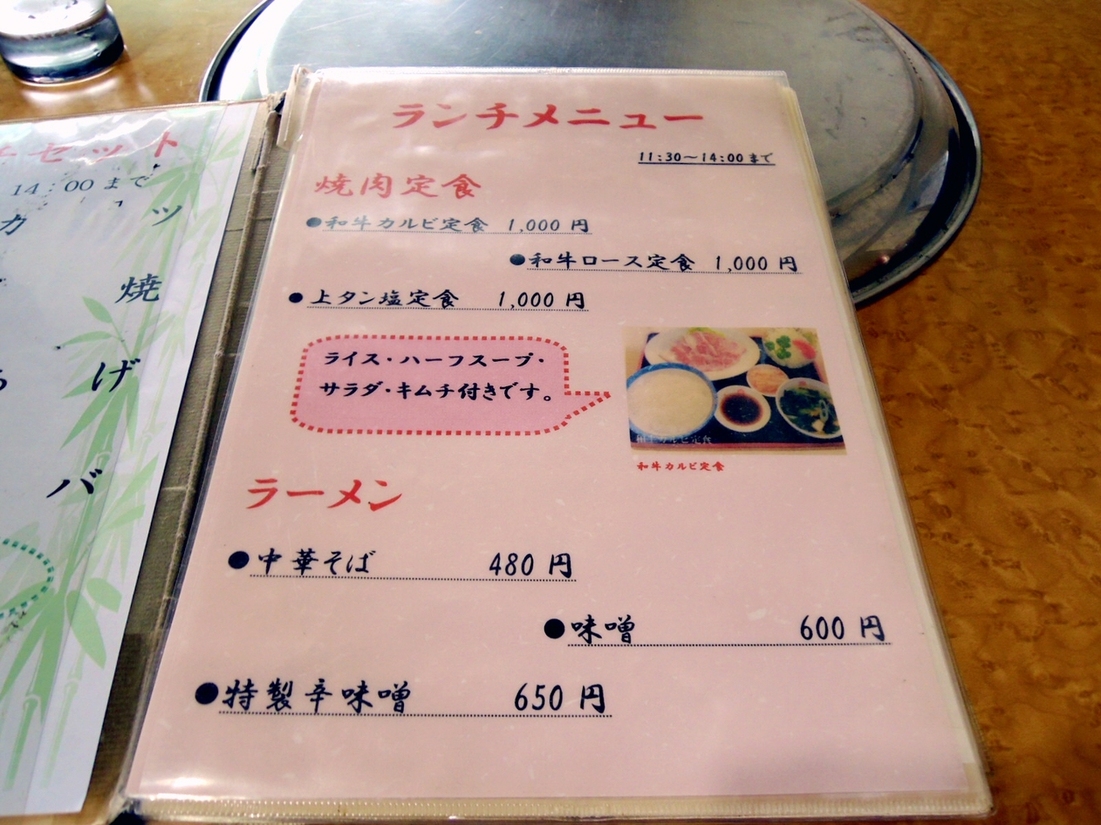 ランチメニュー
11:30〜14:00まで
焼肉定食
●和牛カルビ定食 1,000 円
●和牛ロース定食 1,000 円
●上タン塩定食 1,000 円
ライス・ハーフスープ・
サラダ・キムチ付きです。
和牛カルビ定食
和牛カルビ定食
ラーメン
●中華そば 480 円
●味噌 600 円
●特製辛味噌 650 円
セット
14:00まで
カツ
焼
げ
バ